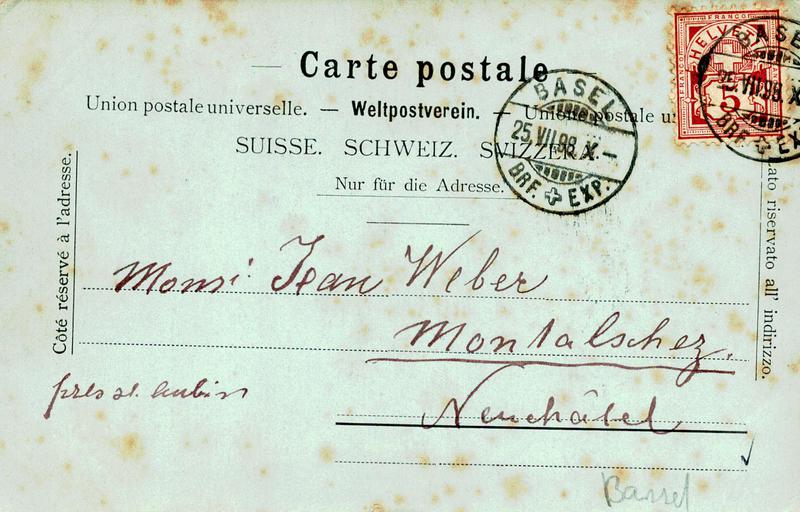 Carte postale
Union postale universelle. — Weltpostverein. — Unione postale u
SUISSE. SCHWEIZ. SVIZZERA.
Nur für die Adresse.
Côté réservé à l'adresse.
Lato riservato all' indirizzo.
BASEL
25.VII.98.X—
BRF. EXP.
FRANCO
HELVETIA
5
BASEL
25.VII.98.X
BRF. EXP.
Monsr. Jean Weber
Montalschez.
près st. Aubin
Neuchâtel
Bassel